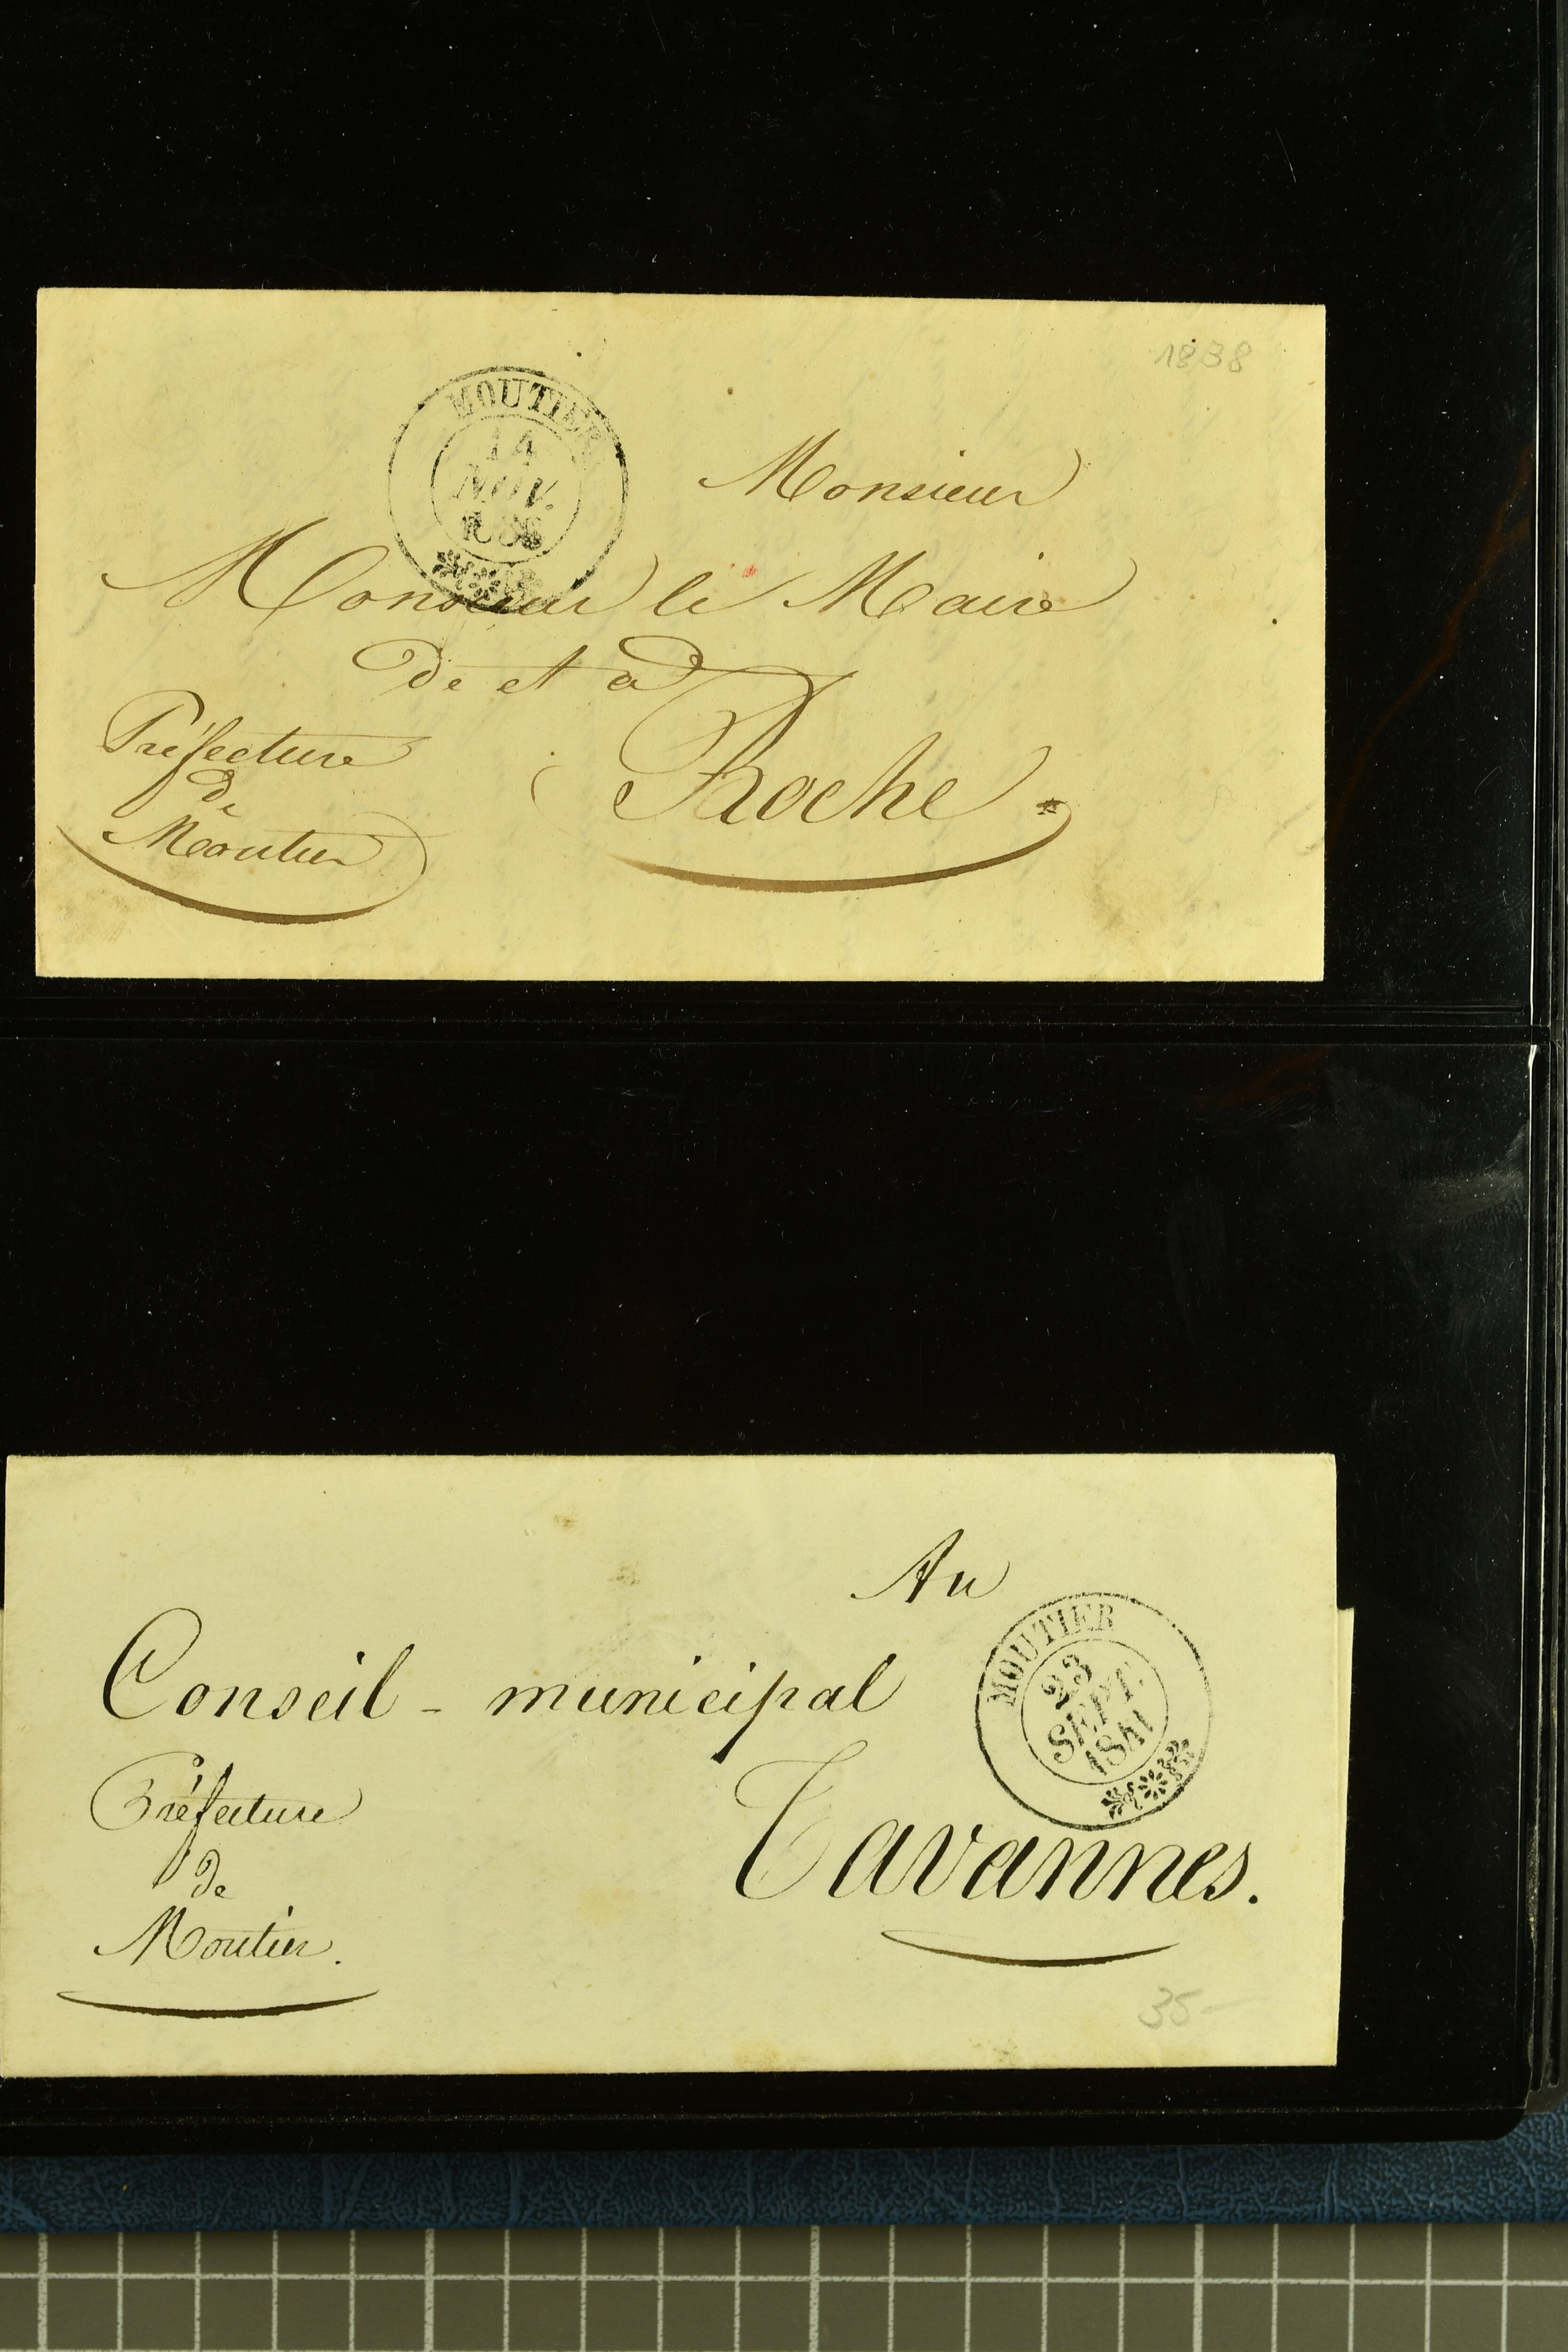 1838
MOUTIER
14
NOV.
Monsieur
Monsieur le Maire
de et à
Roche
Préfecture
de
Moutier
Au
Conseil - municipal
MOUTIER
23
SEPT.
1841
Tavannes.
Préfecture
de
Moutier.
35-